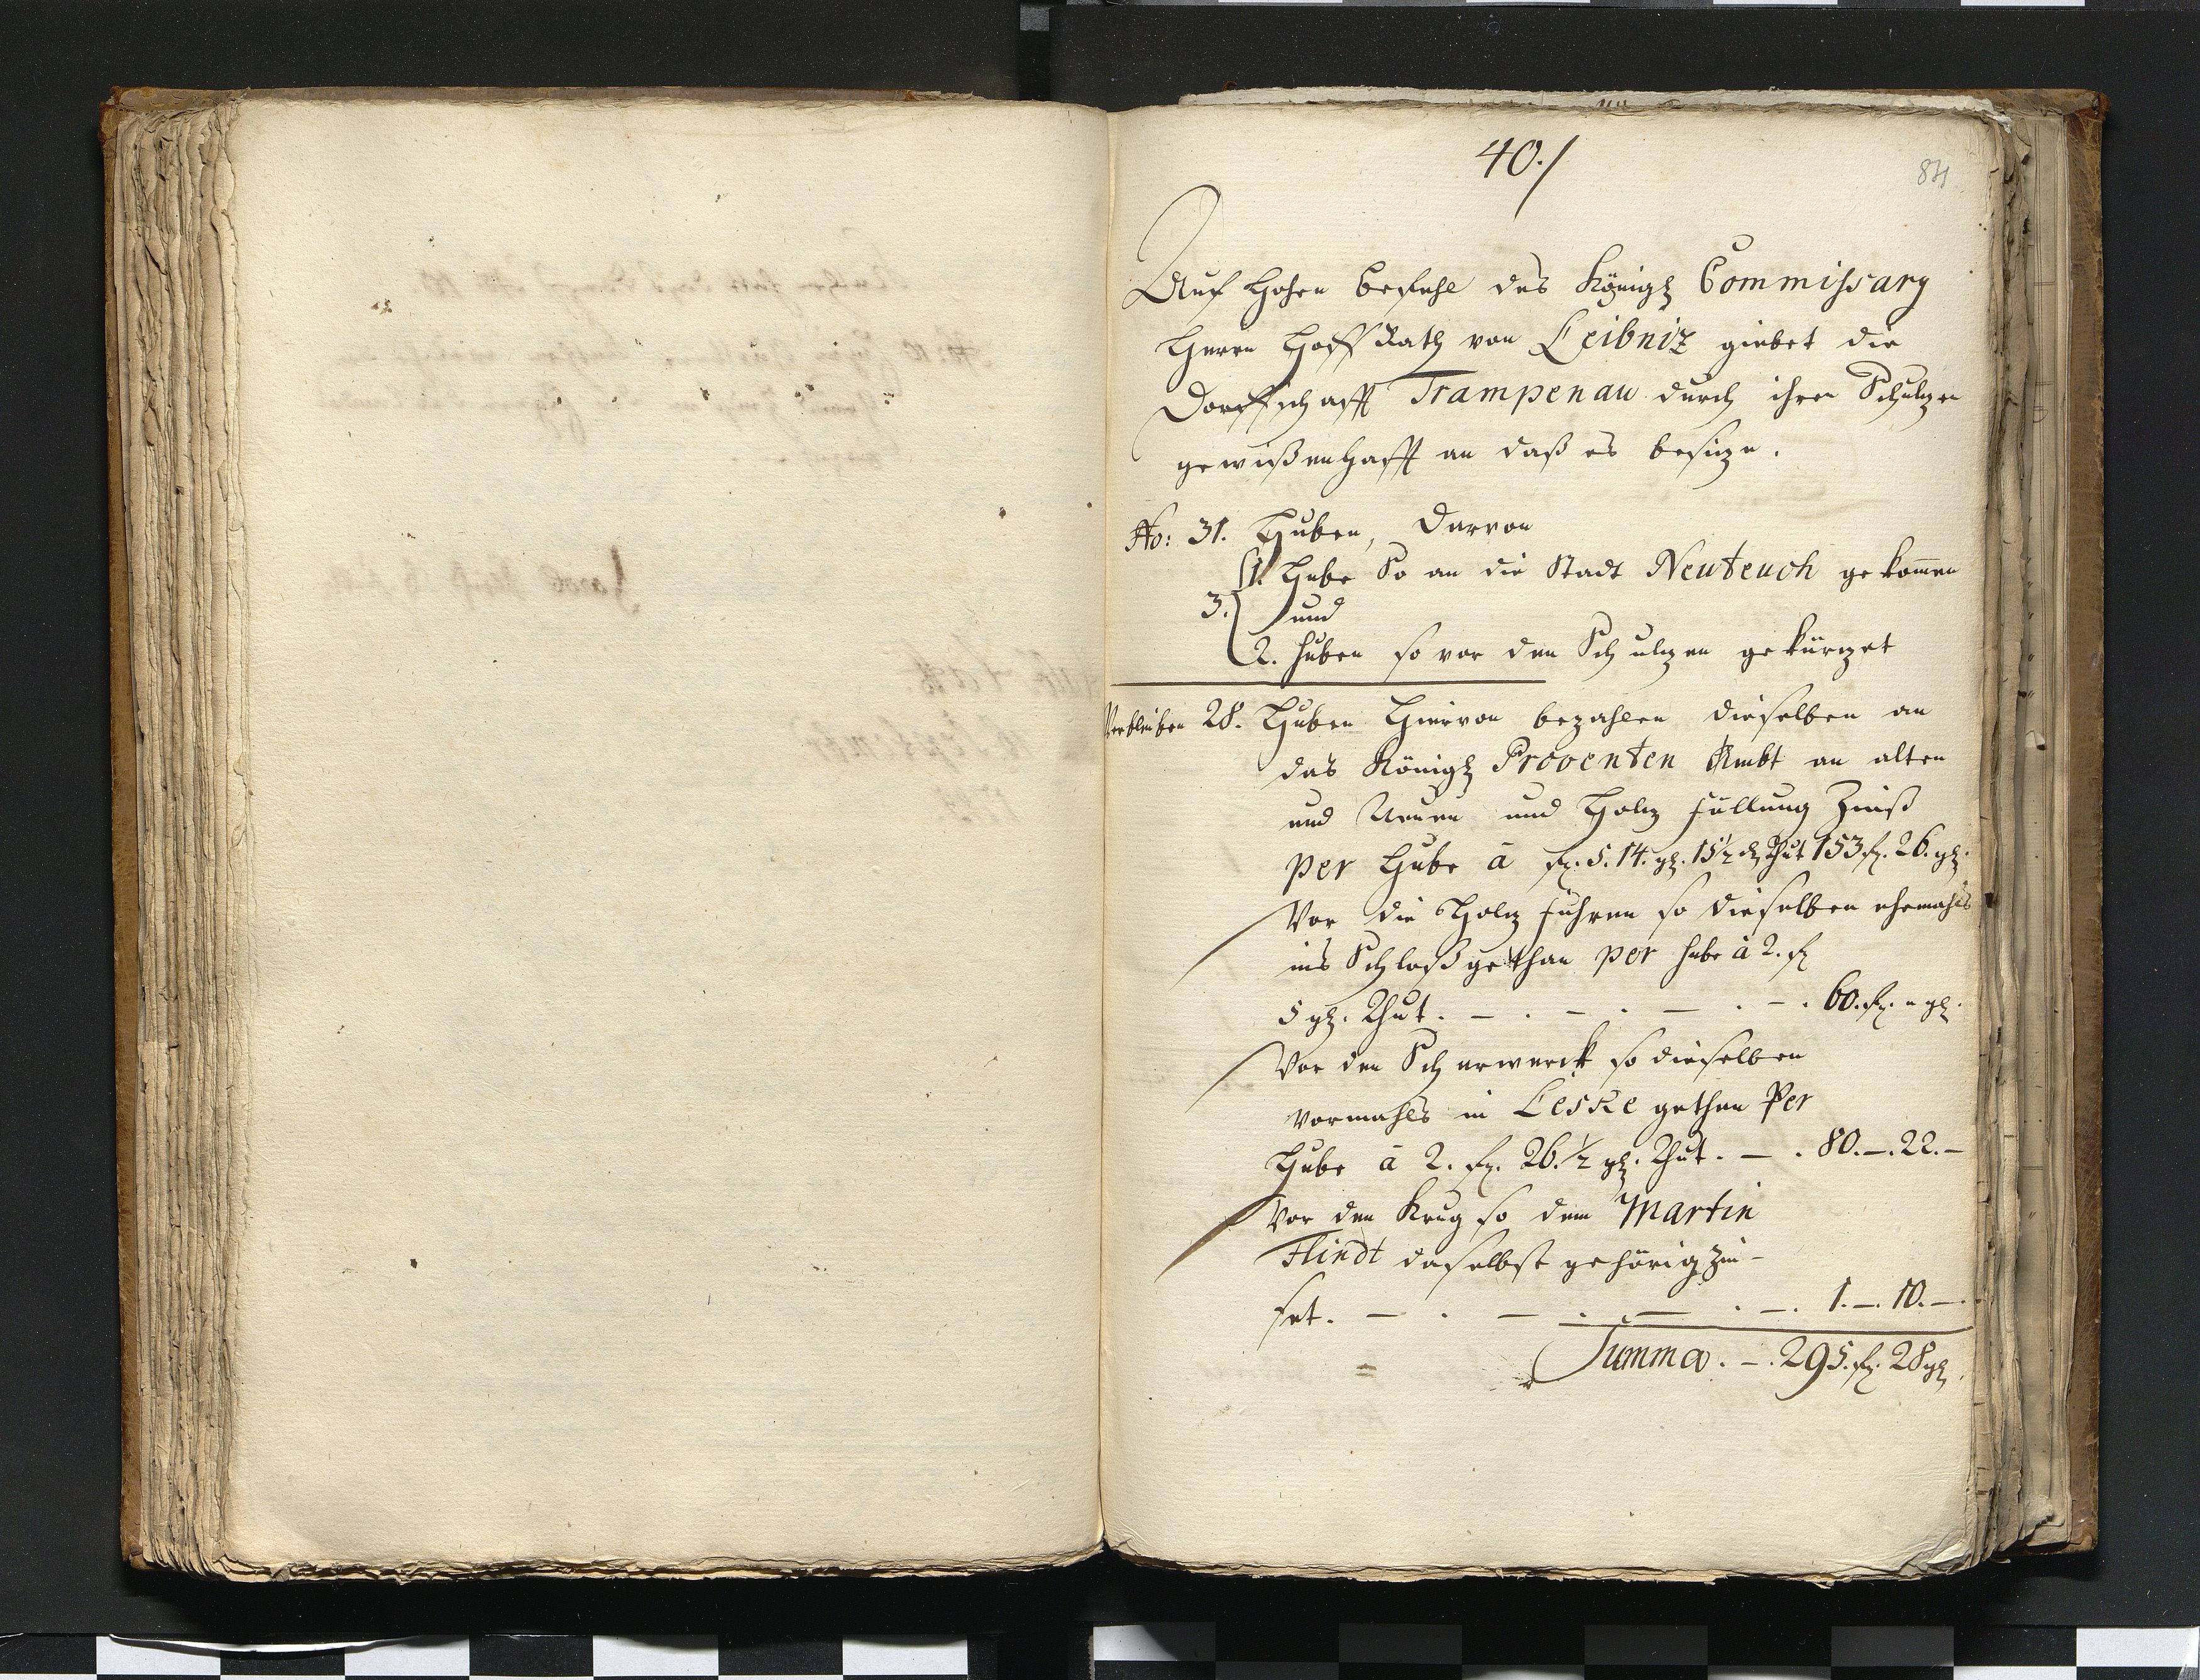 40./
84
Auf Hohen Befehl des Königl Commissary
Herrn Hoff Rath von Leibniz giebet die
Dorffschafft Trampenau durch ihren Schulzen
gewißenhafft an daß es besitze.
No: 31. Huben, Darvon
1. Hube So an die Stadt Neuteuch gekom̄en
3. und
2. Huben so vor den Schulzen gekürzet
Verbleiben 28. Huben Hiervon bezahlen dieselben an
das Königl Proventen Ambt an alten
und Neuen und Holz füllung Zinß
per Hube à fl. 5. 14. gl. 15½ d Thut 153 fl. 26. gl.
Vor die Holz fuhren so dieselben ehemahls
ins Schloß gethan per Hube à 2. fl
5 gl. Thut. — . — . — . — . 60. fl. " gl.
Vor den Scharwerck so dieselben
Vormahls in Leske gethan Per
Hube à 2. fl. 26. ½ gl. Thut. — . 80. —. 22. —
Vor den Krug so dem Martin
Flindt daselbst gehörig Zin-
set. — . — . — . —. 1. —. 10. —.
Summa. —. 295. fl. 28 gl.